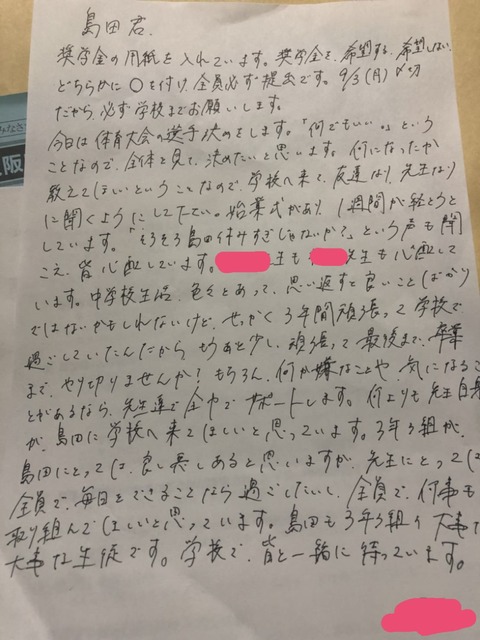 島田君.
奨学金の用紙を入れています。奨学金を、希望する、希望しない、
どちらかに〇を付け、全員必ず提出です。9/3(月)〆切
だから必ず学校までお願いします。
今日は体育大会の選手決めをします。「何でもいい。」という
ことなので、全体を見て、決めたいと思います。何になったか
教えてほしいということなので、学校へ来て、友達なり、先生なり
に聞くようにして下さい。始業式があり、1週間が経とうと
しています。「そろそろ島田休みすぎじゃないか?」という声も聞
こえ、皆心配しています。 生も 先生も心配して
います。中学校生活、色々とあって、思い返すと良いことばかり
ではないかもしれないけど、せっかく3年間頑張って学校で
過ごしていたんだから、もうあと少し、頑張って最後まで、卒業
まで、やり切りませんか?もちろん、何か嫌なことや、気になるこ
とがあるなら、先生達で全力でサポートします。何よりも先生自身
が、島田に学校へ来てほしいと思っています。3年3組が、
島田にとっては、良し悪しあると思いますが、先生にとっては
全員で、毎日をできることなら過ごしたいし、全員で、何事も
取り組んでほしいと思っています。島田も3年3組の大事な
大事な生徒です。学校で、皆と一緒に待っています。
阪